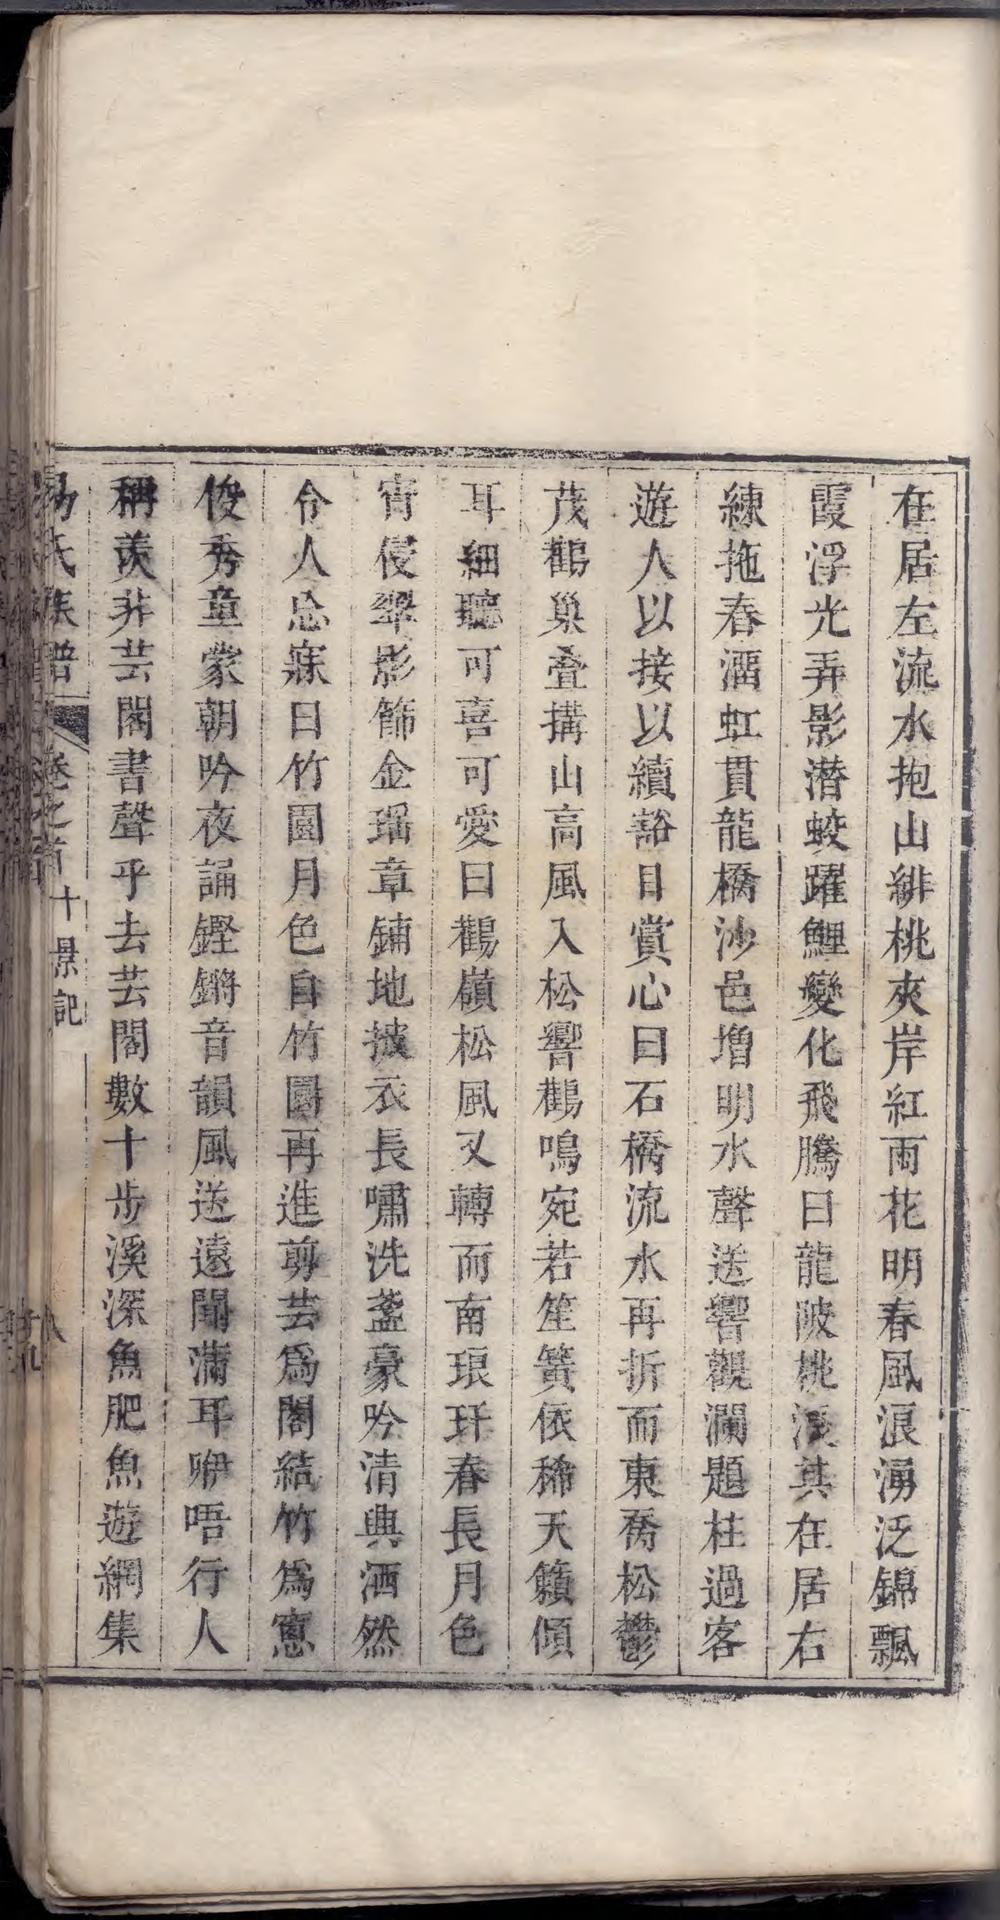 在居左流水抱山緋桃夾岸紅雨花明春風浪湧泛錦飄
霞浮光弄影潜蛟躍鯉變化飛騰曰龍陂桃浪其在居右
練拖春溜虹貫龍橋沙邑增明水聲送響觀瀾題柱過客
遊人以接以續豁目賞心曰石橋流水再折而東喬松鬱
茂鸛巢叠搆山高風入松響鸛鳴宛若笙簧依稀天籟傾
耳細聽可喜可愛曰鸛嶺松風又轉而南琅玕春長月色
宵侵翠影篩金瑶章鋪地披衣長嘯洗盞豪吟清興洒然
令人忘寐曰竹園月色自竹園再進剪芸爲閣結竹爲窻
俊秀童蒙朝吟夜誦鏗鏘音韻風送遠聞滿耳咿唔行人
稱羡非芸閣書聲乎去芸閣數十步溪深魚肥魚遊網集
氏族譜 卷之首 十景記